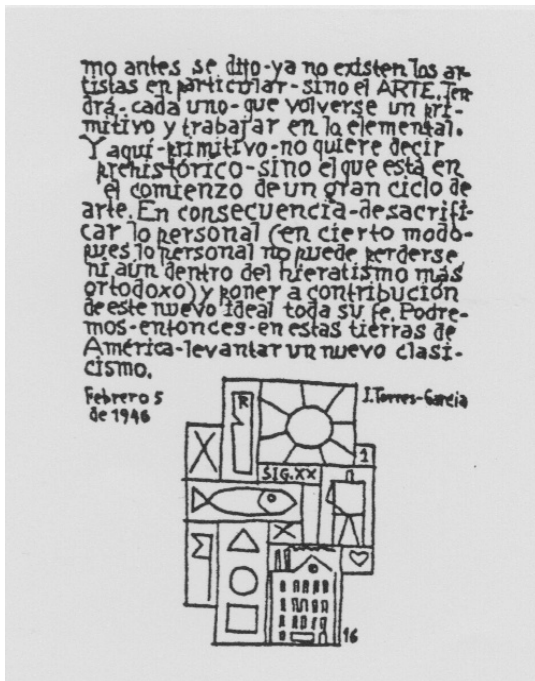 mo antes se dijo-ya no existen los ar-
tistas en particular-sino el ARTE. Ten-
drá-cada uno-que volverse un pri-
mitivo y trabajar en lo elemental.
Y aquí-primitivo-no quiere decir
prehistórico-sino el que está en
el comienzo de un gran ciclo de
arte. En consecuencia-desacrifi-
car lo personal (en cierto modo-
pues lo personal no puede perderse
ni aún dentro del hieratismo más
ortodoxo) y poner a contribución
de este nuevo ideal toda su fe. Podre-
mos-entonces-en estas tierras de
América-levantar un nuevo clasi-
cismo.
Febrero 5
de 1946
J. Torres-García
R
1
SIG.XX
16